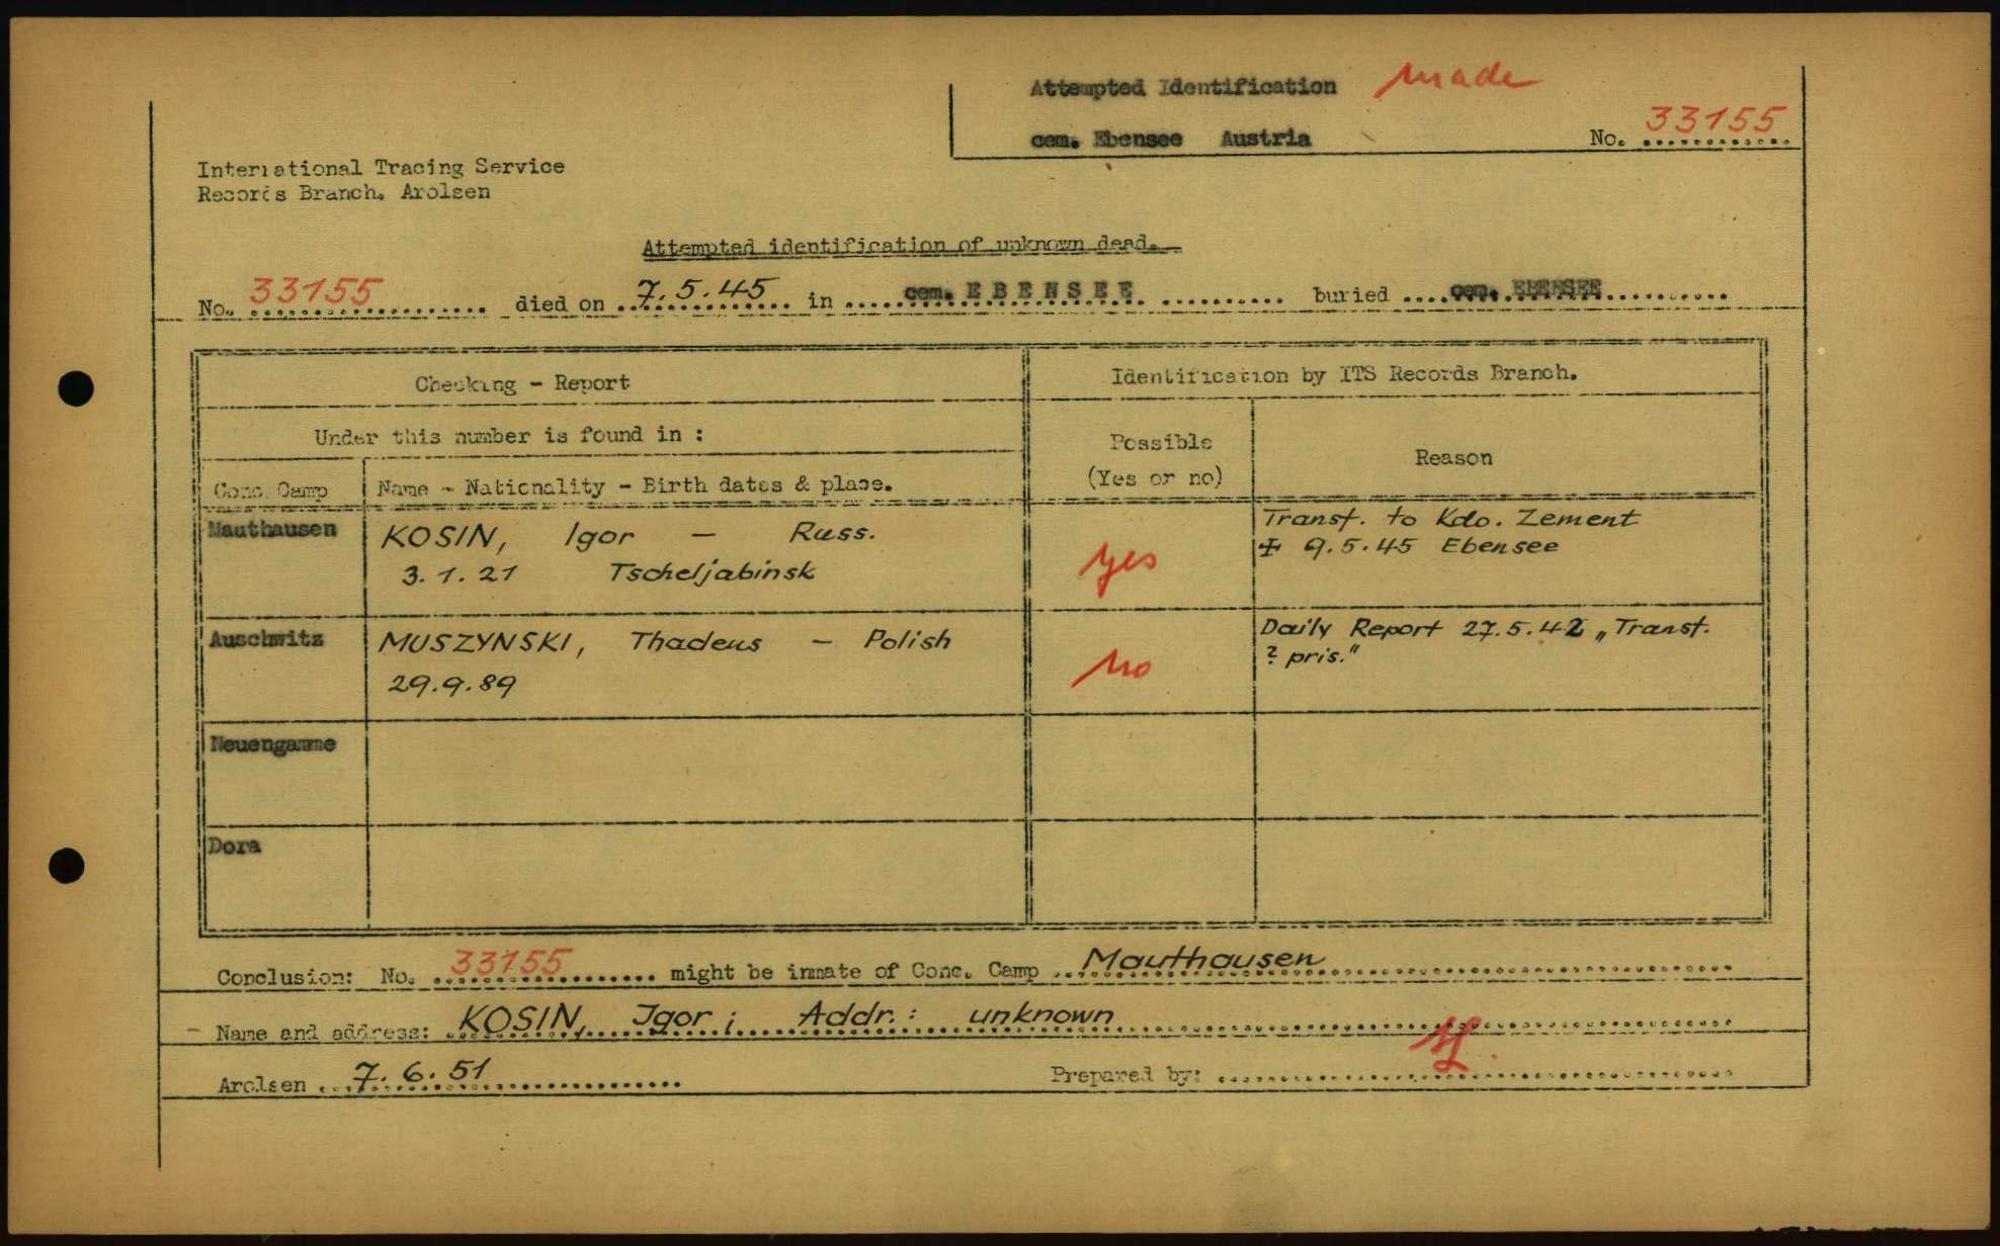 Attempted Identification made
cem. Ebensee Austria No. 33155
International Tracing Service
Records Branch. Arolsen
Attempted identification of unknown dead.
No. 33155 died on 7.5.45 in cem. EBENSEE buried cem. EBENSEE
Checking - Report
Identification by ITS Records Branch.
Under this number is found in :
Possible
(Yes or no)
Reason
Conc. Camp Name - Nationality - Birth dates & place.
Mauthausen KOSIN, Igor - Russ.
3.1.21 Tscheljabinsk
yes
Transf. to Kdo. Zement
9.5.45 Ebensee
Auschwitz MUSZYNSKI, Thadeus - Polish
29.9.89
no
Daily Report 27.5.42 „Transf.
? pris."
Neuengamme
Dora
Conclusion: No. 33155 might be inmate of Conc. Camp Mauthausen
Name and address: KOSIN, Igor; Addr.: unknown
Arolsen 7.6.51 Prepared by: